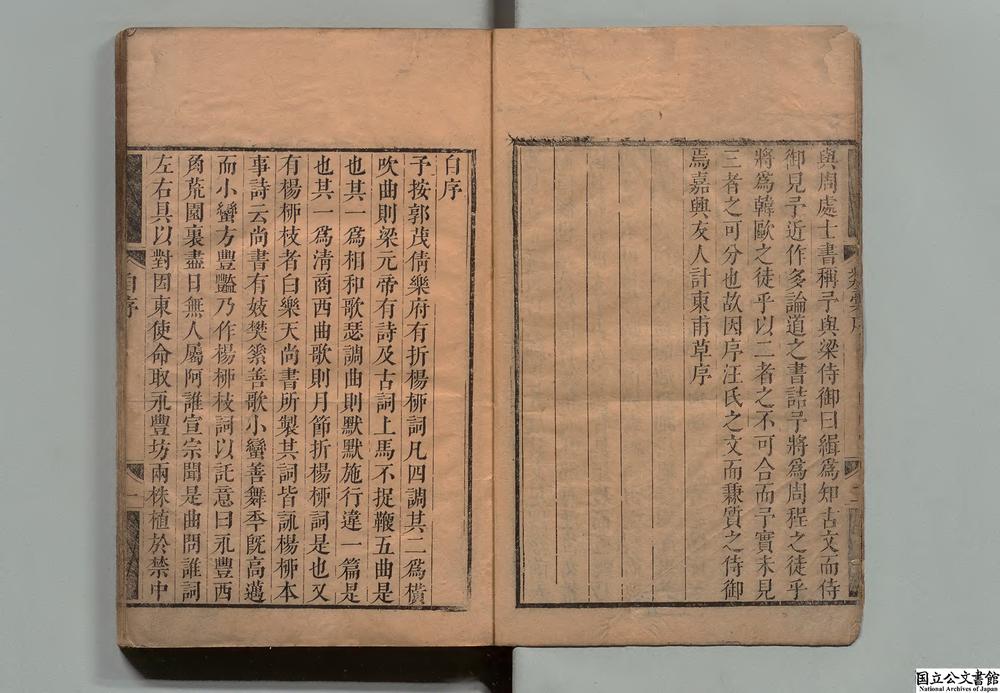 與周處士書稱予與梁侍御曰緝爲知古文而侍
御見予近作多論道之書詰予將爲周程之徒乎
將爲韓歐之徒乎以二者之不可合而予實未見
三者之可分也故因序汪氏之文而兼質之侍御
焉嘉興友人計東甫草序
類藁序
二
自序
予按郭茂倩樂府有折楊栁詞凡四調其二爲橫
吹曲則梁元帝有詩及古詞上馬不捉鞭五曲是
也其一爲相和歌瑟調曲則默默施行違一篇是
也其一爲清商西曲歌則月節折楊栁詞是也又
有楊栁枝者白樂天尚書所製其詞皆詠楊栁本
事詩云尚書有妓樊素善歌小蠻善舞秊旣高邁
而小蠻方豐豔乃作楊栁枝詞以託意曰永豐西
角荒園裏盡日無人屬阿誰宣宗聞是曲問誰詞
左右具以對因東使命取永豐坊兩株植於禁中
自序
一
国立公文書館
National Archives of Japan